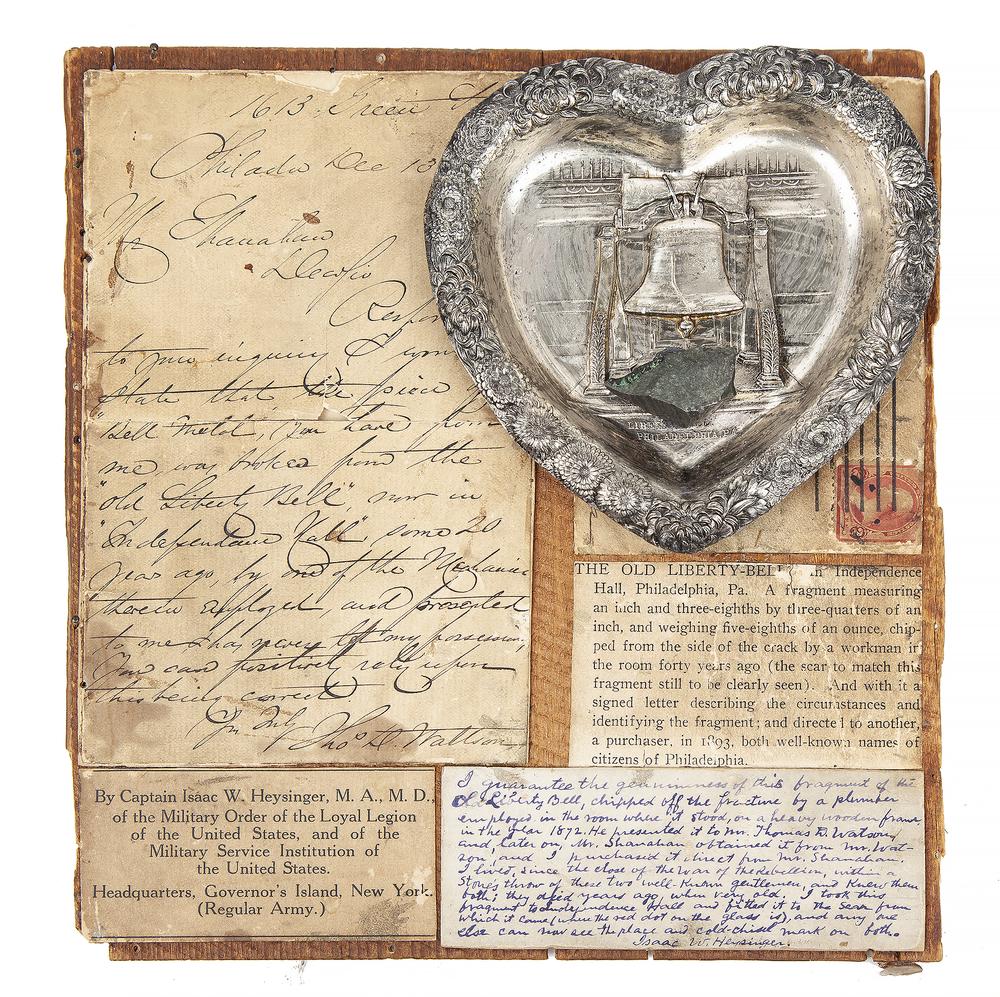 1613 Green
Philada Dec 13
Mr Shanahan
Dear Sir
to your inquiry I
state that the piece
"Bell Metal", you have from
me was broken from the
"old Liberty Bell", now in
"Independence Hall" some 20
years ago by one of the Mechanics
therein employed, and presented
to me & has never left my possession,
You can positively rely upon
this being correct.
Thos. D. Watson
LIBERTY
PHILADELPHIA PA.
THE OLD LIBERTY-BELL in Independence
Hall, Philadelphia, Pa. A fragment measuring
an inch and three-eighths by three-quarters of an
inch, and weighing five-eighths of an ounce, chip-
ped from the side of the crack by a workman in
the room forty years ago (the scar to match this
fragment still to be clearly seen). And with it a
signed letter describing the circumstances and
identifying the fragment; and directed to another,
a purchaser, in 1893, both well-known names of
citizens of Philadelphia.
By Captain Isaac W. Heysinger, M. A., M. D.,
of the Military Order of the Loyal Legion
of the United States, and of the
Military Service Institution of
the United States.
Headquarters, Governor's Island, New York.
(Regular Army.)
I guarantee the genuineness of this fragment of the
Old Liberty Bell, chipped off the fracture by a plumber
employed in the room where it stood, on a heavy wooden frame
in the year 1872. He presented it to Mr. Thomas D. Watson,
and later on, Mr. Shanahan obtained it from Mr. Wat-
son, and I purchased it direct from Mr. Shanahan.
I lived, since the close of the War of the Rebellion, within a
stone's throw of these two well-known gentlemen, and knew them
both; they died years ago, when very old. I took this
fragment to Independence Hall and fitted it to the scar from
which it came (where the red dot on the glass is), and any one
else can now see the place and cold-chisel mark on both.
Isaac W. Heysinger.